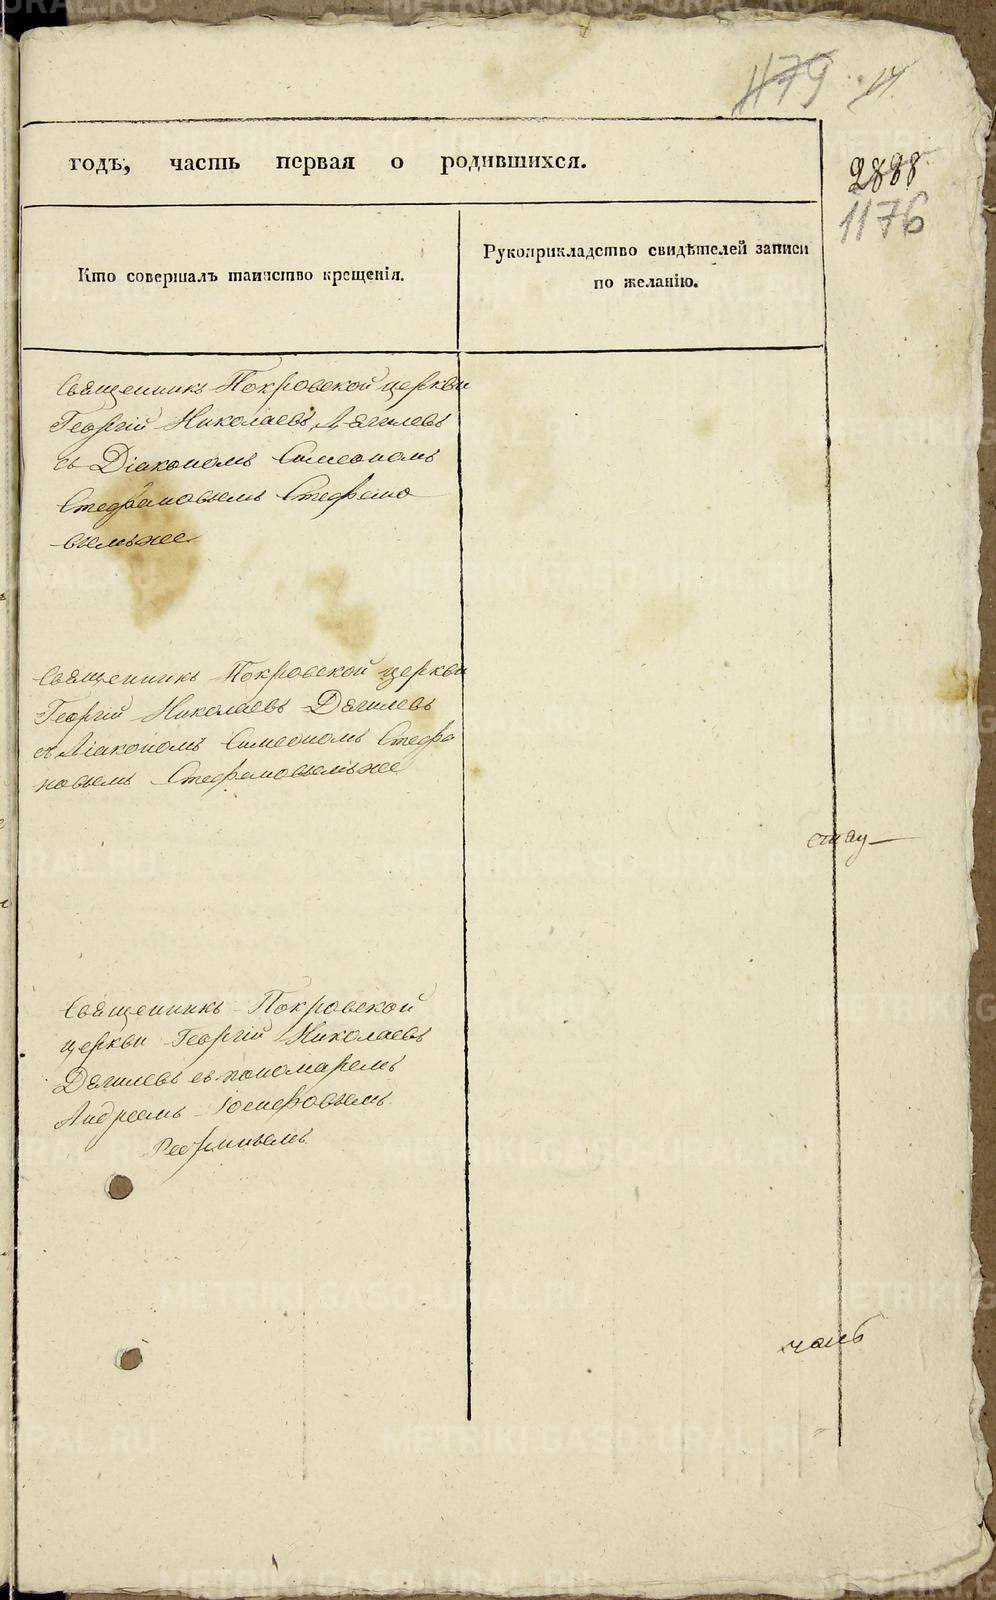 1179
17
годъ, часть первая о родившихся.
2888
1176
Кто совершалъ таинство крещенія.
Рукоприкладство свидѣтелей записи
по желанію.
Священникъ Покровской церкви
Георгій Николаевъ Дягилевъ
съ Діакономъ Симеономъ
Стефановымъ Стефано
вымъ же
Священникъ Покровской церкви
Георгій Николаевъ Дягилевъ
съ Діакономъ Симеономъ Стефа
новымъ Стефановымъ же
Священникъ Покровской
церкви Георгій Николаевъ
Дягилевъ съ пономаремъ
Андреемъ Іосифовымъ
METRIKI.GASO-URAL.RU